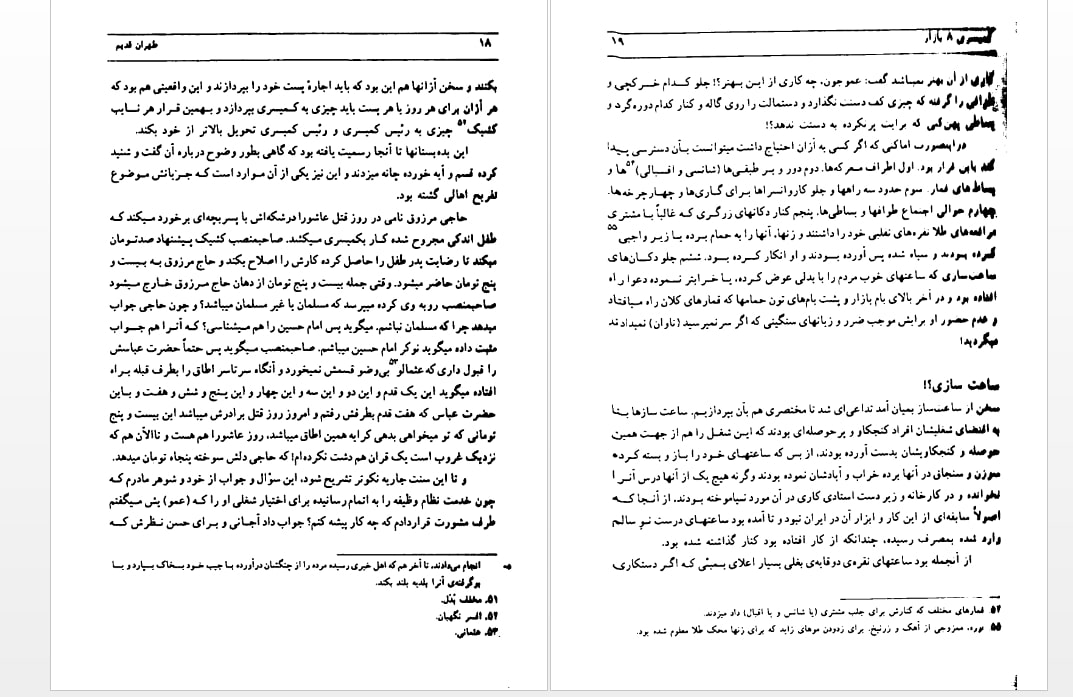 ۱۸ طهران قدیم
بکنند و سخن آژانها هم این بود که باید اجارهٔ پست خود را بپردازند و این واقعیتی هم بود که
هر آژان برای هر روز یا هر پست باید چیزی به کمیسری بپردازد و بهمین قرار هر نایب
کشیک۵۲ چیزی به رئیس کمیسری و رئیس کمیسری تحویل بالاتر از خود بکند.
این بده‌بستانها تا آنجا رسمیت یافته بود که گاهی بطور وضوح درباره آن گفت و شنید
کرده قسم و آیه خورده چانه میزدند و این نیز یکی از آن موارد است که جزیانش موضوع
تفریح اهالی گشته بود.
حاجی مرزوق نامی در روز قتل عاشورا درشکه‌اش با پسربچه‌ای برخورد میکند که
طفل اندکی مجروح شده کار بکمیسری میکشد. صاحبمنصب کشیک پیشنهاد صدتومان
میکند تا رضایت پدر طفل را حاصل کرده کارش را اصلاح بکند و حاج مرزوق به بیست و
پنج تومان حاضر میشود. وقتی جمله بیست و پنج تومان از دهان حاج مرزوق خارج میشود
صاحبمنصب روبه وی کرده میپرسد که مسلمان یا غیر مسلمان میباشد؟ و چون حاجی جواب
میدهد چرا که مسلمان نباشم. میگوید پس امام حسین را هم میشناسی؟ که آنرا هم جواب
مثبت داده میگوید نوکر امام حسین میباشم. صاحبمنصب میگوید پس حتماً حضرت عباسش
را قبول داری که عثمالو۵۳ بی‌وضو قسمش نمیخورد و آنگاه سرتاسر اطاق را بطرف قبله براه
افتاده میگوید این یک قدم و این دو و این سه و این چهار و این پنج و شش و هفت و باین
حضرت عباس که هفت قدم بطرفش رفتم و امروز روز قتل برادرش میباشد این بیست و پنج
تومانی که تو میخواهی بدهی کرایه همین اطاق میباشد، روز عاشورا هم هست و تاالآن هم که
نزدیک غروب است یک قران هم دشت نکرده‌ام! که حاجی دلش سوخته پنجاه تومان میدهد.
و تا این سنت جاریه نکوتر تشریح شود، این سؤال و جواب از خود و شوهر مادرم که
چون خدمت نظام وظیفه را به اتمام رسانیده برای اختیار شغلی او را که (عمو) یش میگفتم
طرف مشورت قراردادم که چه کار پیشه کنم؟ جواب داد آجانی و برای حسن نظرش که
انجام می‌دادند، تا آخر هم که اهل خبری رسیده مرده را از چنگشان درآورده با جیب خود بخاک بسپارد و با
برگرفته‌ی آنرا بلدیه بلند بکند.
۵۱. مخفف پُتُل.
۵۲. افسر نگهبان.
۵۳. عثمانی.
کمیسری ۸ بازار ۱۹
کاری از آن بهتر نمیباشد گفت: عموجون، چه کاری از این بهتر؟! جلو کدام خرکچی و
طوافی را گرفته که چیزی کف دستت نگذارد و دستمالت را روی گاله و کنار کدام دوره‌گرد و
بساطی پهن‌کنی که برایت پرنکرده به دستت ندهد؟!
دراینصورت اماکنی که اگر کسی به آژان احتیاج داشت میتوانست بآن دسترسی پیدا
کند باین قرار بود. اول اطراف معرکه‌ها. دوم دور و بر طبقی‌ها (شانسی و اقبالی)۵۴ ها و
بساطهای قمار. سوم حدود سه راهها و جلو کاروانسراها برای گاری‌ها و چهارچرخه‌ها.
چهارم حوالی اجتماع طوافها و بساطی‌ها. پنجم کنار دکانهای زرگری که غالباً با مشتری
مرافعه‌های طلا نقره‌های تقلبی خود را داشتند و زنها، آنها را به حمام برده با زیر واجبی۵۵
کرده بودند و سیاه شده پس آورده بودند و او انکار کرده بود. ششم جلو دکان‌های
ساعت‌سازی که ساعتهای خوب مردم را با بدلی عوض کرده، یا خرابتر نموده دعوا راه
افتاده بود و در آخر بالای بام بازار و پشت بام‌های تون حمامها که قمارهای کلان راه میافتاد
و عدم حضور او برایش موجب ضرر و زیانهای سنگینی که اگر سرنمیرسید (تاوان) نمیدادند
میگردید!
ساعت سازی؟!
سخن از ساعت‌ساز بمیان آمد تداعی‌ای شد تا مختصری هم بآن بپردازیم. ساعت سازها بنا
به اقتضای شغلیشان افراد کنجکاو و پرحوصله‌ای بودند که این شغل را هم از جهت همین
حوصله و کنجکاویشان بدست آورده بودند، از بس که ساعتهای خود را باز و بسته کرده
سوزن و سنجاق در آنها برده خراب و آبادشان نموده بودند وگرنه هیچ یک از آنها درس آنرا
نخوانده و در کارخانه و زیر دست استادی کاری در آن مورد نیاموخته بودند، از آنجا که
اصولاً سابقه‌ای از این کار و ابزار آن در ایران نبود و تا آمده بود ساعتهای درست نو سالم
وارد شده بمصرف رسیده، چندانکه از کار افتاده بود کنار گذاشته شده بود.
از آنجمله بود ساعتهای نقره‌ی دوقابه‌ی بغلی بسیار اعلای یمینی که اگر دستکاری،
۵۴. قمارهای مختلف که کنارش برای جلب مشتری (یا شانس و یا اقبال) داد میزدند.
۵۵. نوره، ممزوجی از آهک و زرنیخ. برای زدودن موهای زاید که برای زنها محک طلا معلوم شده بود.